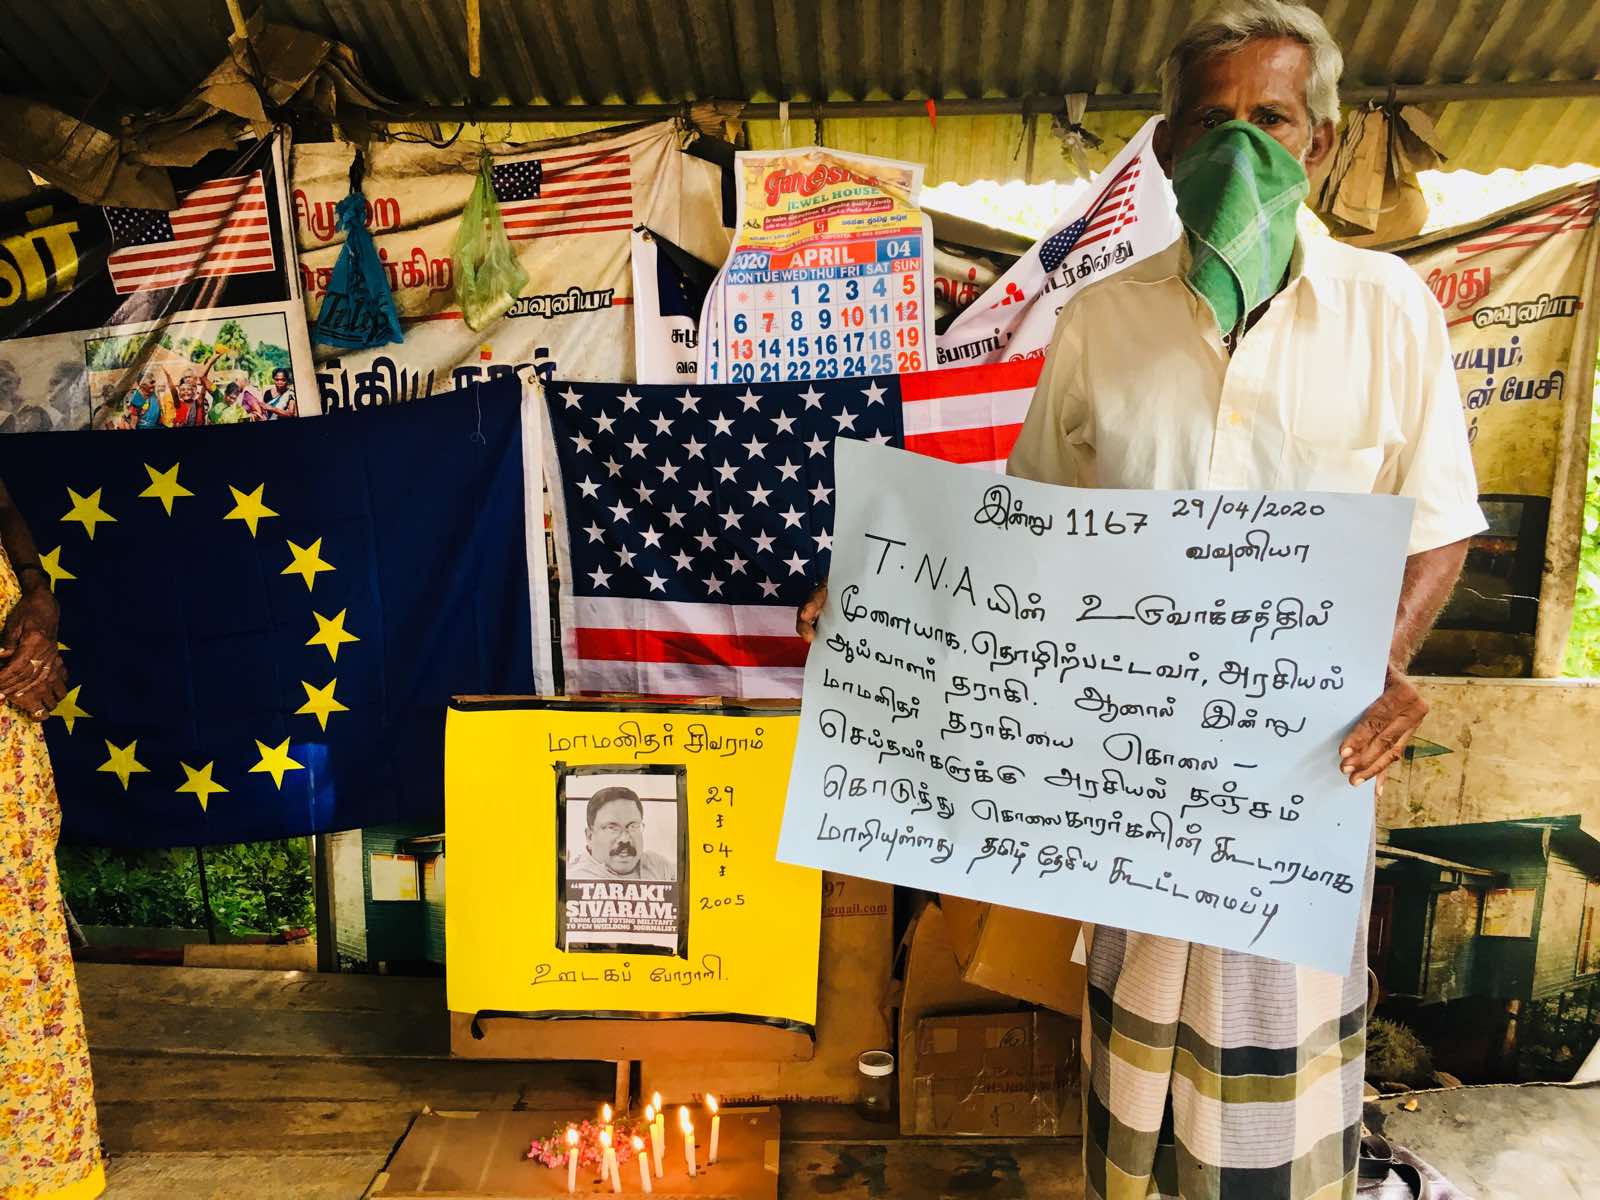 ள்
சிமுறை
கிற
வவுனியா
ங்கிய
Ganesh
JEWEL HOUSE
2020 APRIL 04
MON TUE WED THU FRI SAT SUN
1 2 3 4 5
6 7 8 9 10 11 12
13 14 15 16 17 18 19
20 21 22 23 24 25 26
சுழ
வவ
டர்கின்து
போராட்
றது
வவுனியா
பையும்,
டன் பேசி
இன்று 1167 29/04/2020
வவுனியா
T.N.A யின் உருவாக்கத்தில்
மூளையாக, தொழிற்பட்டவர், அரசியல்
ஆய்வாளர் தராகி. ஆனால் இன்று
மாமனிதர் தராகியை கொலை –
செய்தவர்களுக்கு அரசியல் தஞ்சம்
கொடுத்து கொலைகாரர்களின் கூடாரமாக
மாறியுள்ளது தமிழ் தேசிய கூட்டமைப்பு
மாமனிதர் சிவராம்
29
04
2005
"TARAKI"
SIVARAM:
FROM GUN TOTING MILITANT
TO PEN WIELDING JOURNALIST
ஊடகப் போராளி.
97
@gmail.com
with care.